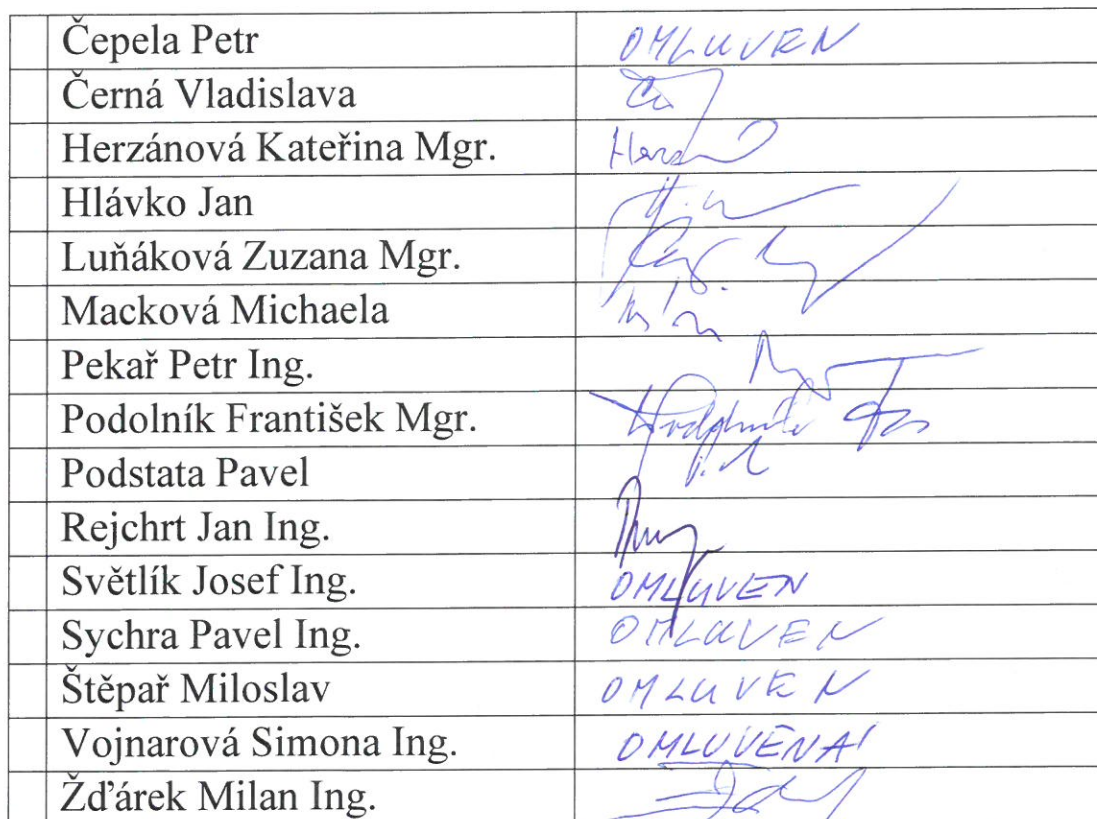 Čepela Petr OMLUVEN
Černá Vladislava
Herzánová Kateřina Mgr.
Hlávko Jan
Luňáková Zuzana Mgr.
Macková Michaela
Pekař Petr Ing.
Podolník František Mgr.
Podstata Pavel
Rejchrt Jan Ing.
Světlík Josef Ing. OMLUVEN
Sychra Pavel Ing. OMLUVEN
Štěpař Miloslav OMLUVEN
Vojnarová Simona Ing. OMLUVENA
Žďárek Milan Ing.